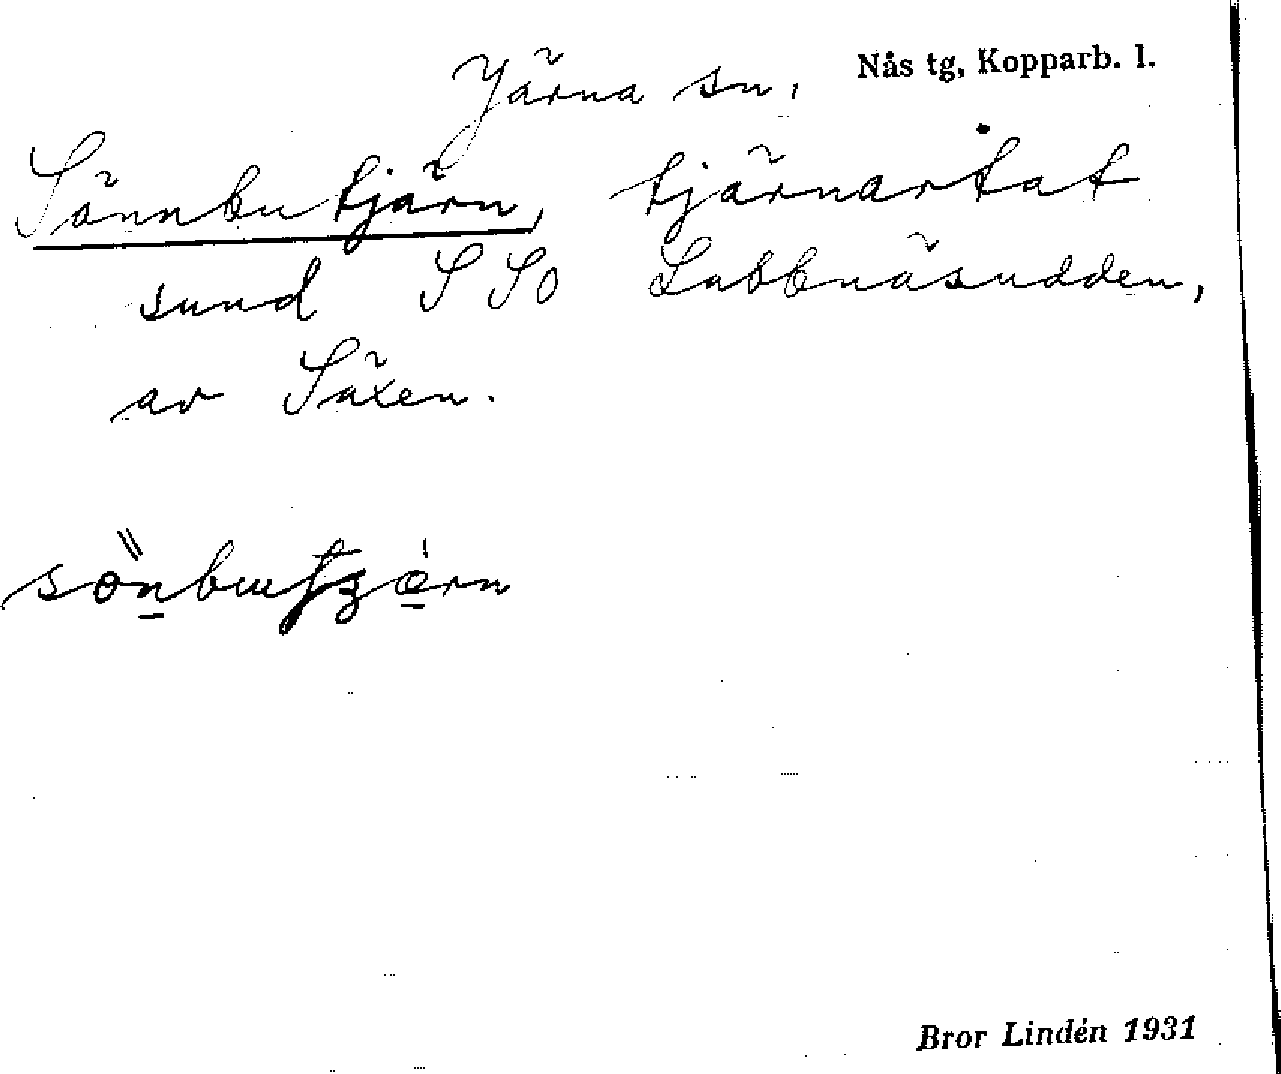 Järna sn, Nås tg, Kopparb. l.
Sönnbutjärn, tjärnartat
sund S SO Labbnäsudden,
av Säxen.
Bror Lindén 1931